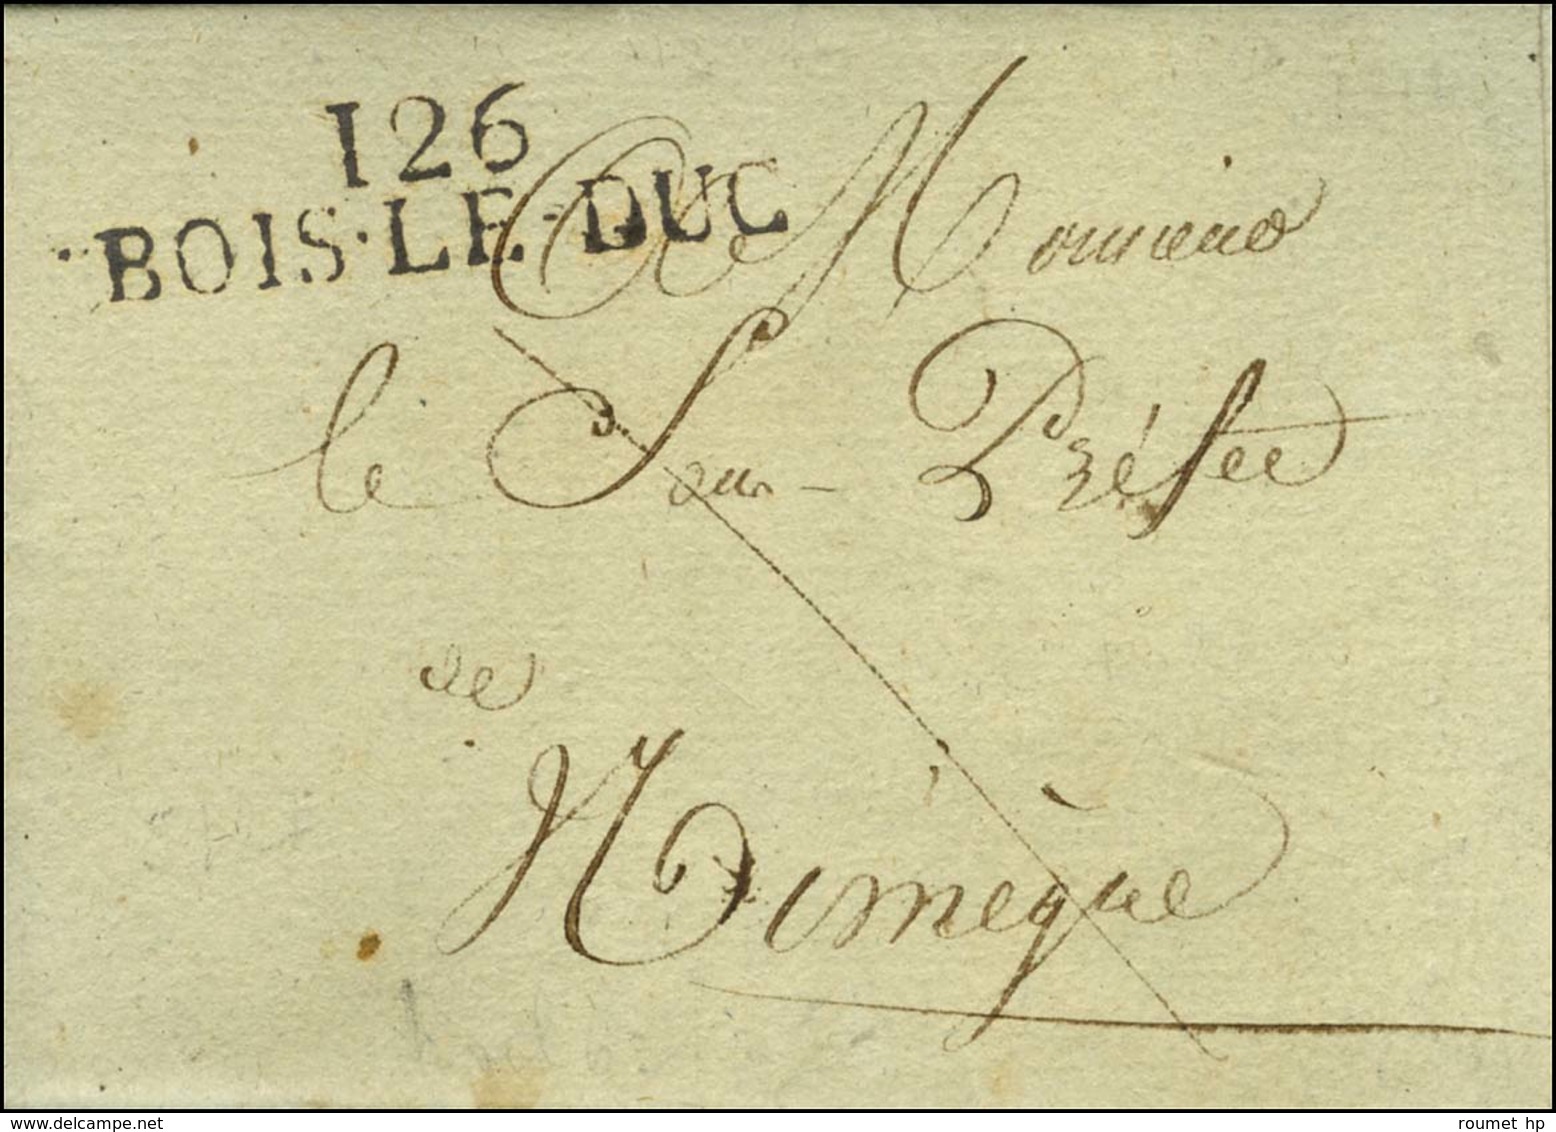 126
BOIS-LE-DUC
A Monsieur
le Sous-Préfet
de
Nimègue
delcampe.net
roumet hp